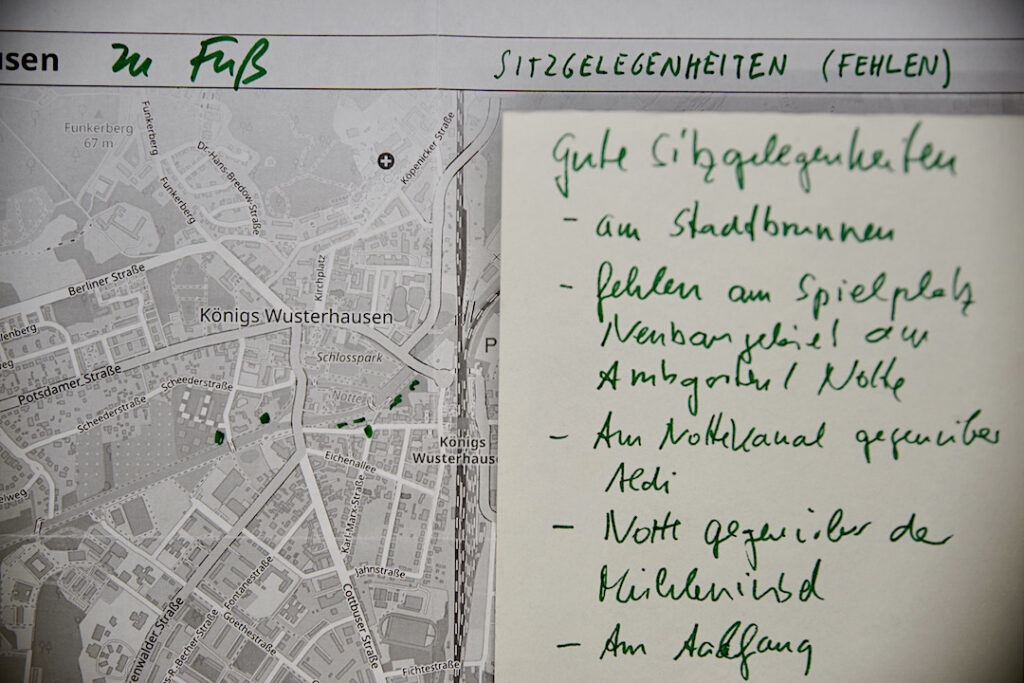 usen zu Fuß
SITZGELEGENHEITEN (FEHLEN)
Funkerberg
67 m
Funkerberg
Dr.-Hans-Bredow-Straße
Köpenicker Straße
Funkerberg
Berliner Straße
Kirchplatz
Königs Wusterhausen
Schlosspark
P
Potsdamer Straße
Scheederstraße
Scheederstraße
Notte
Königs
Wusterhause
Eichenallee
Karl-Marx-Straße
Jahnstraße
Fontanestraße
Goethestraße
Cottbuser Straße
Fichtestraße
Gute Sitzgelegenheiten
- am Stadtbrunnen
- fehlen am Spielplatz
Neubaugebiet am
Amtsgarten / Notte
- Am Nottekanal gegenüber
Aldi
- Notte gegenüber der
Mühleninsel
- Am Aalfang